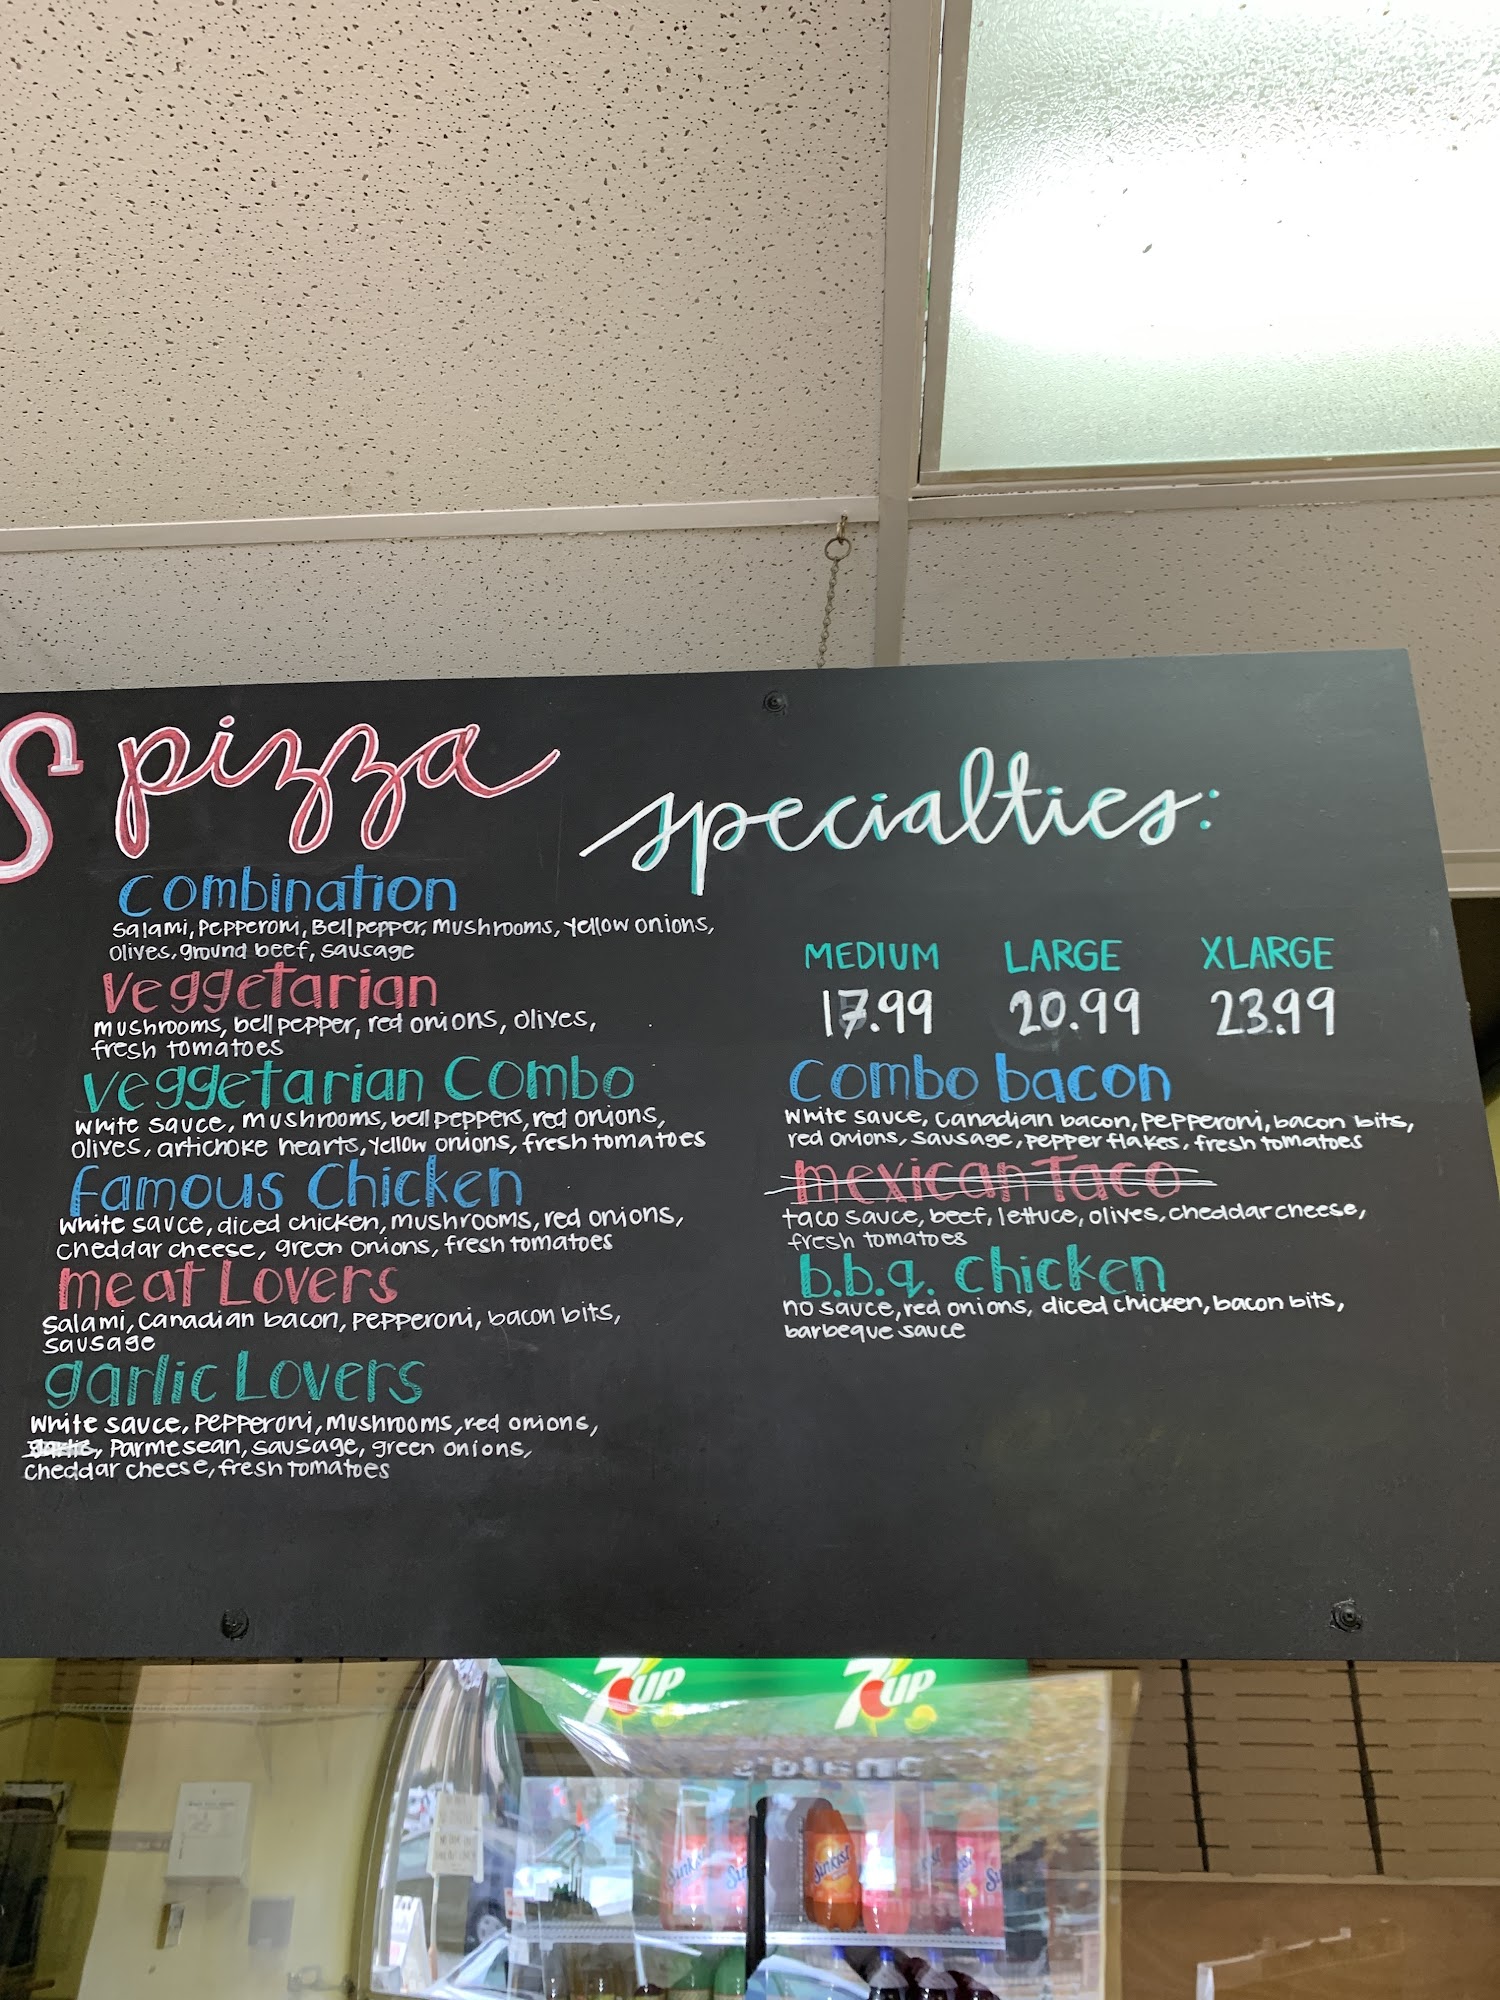 S pizza
specialties:
Combination
Salami, Pepperoni, Bell pepper, mushrooms, yellow onions,
olives, ground beef, sausage
Veggetarian
mushrooms, bell pepper, red onions, olives,
fresh tomatoes
Veggetarian Combo
White sauce, mushrooms, bell peppers, red onions,
olives, artichoke hearts, yellow onions, fresh tomatoes
Famous Chicken
White sauce, diced chicken, mushrooms, red onions,
cheddar cheese, green onions, fresh tomatoes
meat Lovers
Salami, Canadian bacon, pepperoni, bacon bits,
sausage
garlic Lovers
White sauce, pepperoni, mushrooms, red onions,
garlic, parmesean, sausage, green onions,
cheddar cheese, fresh tomatoes
MEDIUM LARGE XLARGE
17.99 20.99 23.99
Combo bacon
White sauce, Canadian bacon, pepperoni, bacon bits,
red onions, sausage, pepper flakes, fresh tomatoes
mexican Taco
taco sauce, beef, lettuce, olives, cheddar cheese,
fresh tomatoes
b.b.q. chicken
no sauce, red onions, diced chicken, bacon bits,
barbeque sauce
7UP 7UP
Sunkist